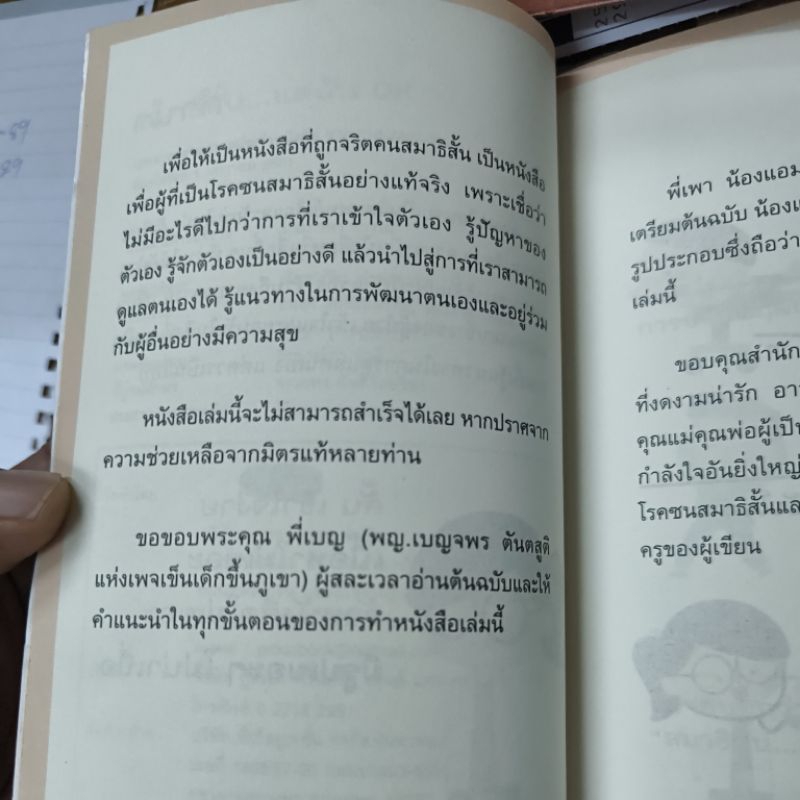 เพื่อให้เป็นหนังสือที่ถูกจริตคนสมาธิสั้น เป็นหนังสือ
เพื่อผู้ที่เป็นโรคซนสมาธิสั้นอย่างแท้จริง เพราะเชื่อว่า
ไม่มีอะไรดีไปกว่าการที่เราเข้าใจตัวเอง รู้ปัญหาของ
ตัวเอง รู้จักตัวเองเป็นอย่างดี แล้วนำไปสู่การที่เราสามารถ
ดูแลตนเองได้ รู้แนวทางในการพัฒนาตนเองและอยู่ร่วม
กับผู้อื่นอย่างมีความสุข
หนังสือเล่มนี้จะไม่สามารถสำเร็จได้เลย หากปราศจาก
ความช่วยเหลือจากมิตรแท้หลายท่าน
ขอขอบพระคุณ พี่เบญ (พญ.เบญจพร ตันตสูติ
แห่งเพจเข็นเด็กขึ้นภูเขา) ผู้สละเวลาอ่านต้นฉบับและให้
คำแนะนำในทุกขั้นตอนของการทำหนังสือเล่มนี้
พี่เพา น้องแอม
เตรียมต้นฉบับ น้อง
รูปประกอบซึ่งถือว่า
เล่มนี้
ขอบคุณสำนัก
ที่งดงามน่ารัก
คุณแม่คุณพ่อผู้เป็น
กำลังใจอันยิ่งใหญ่
โรคซนสมาธิสั้นและ
ครูของผู้เขียน